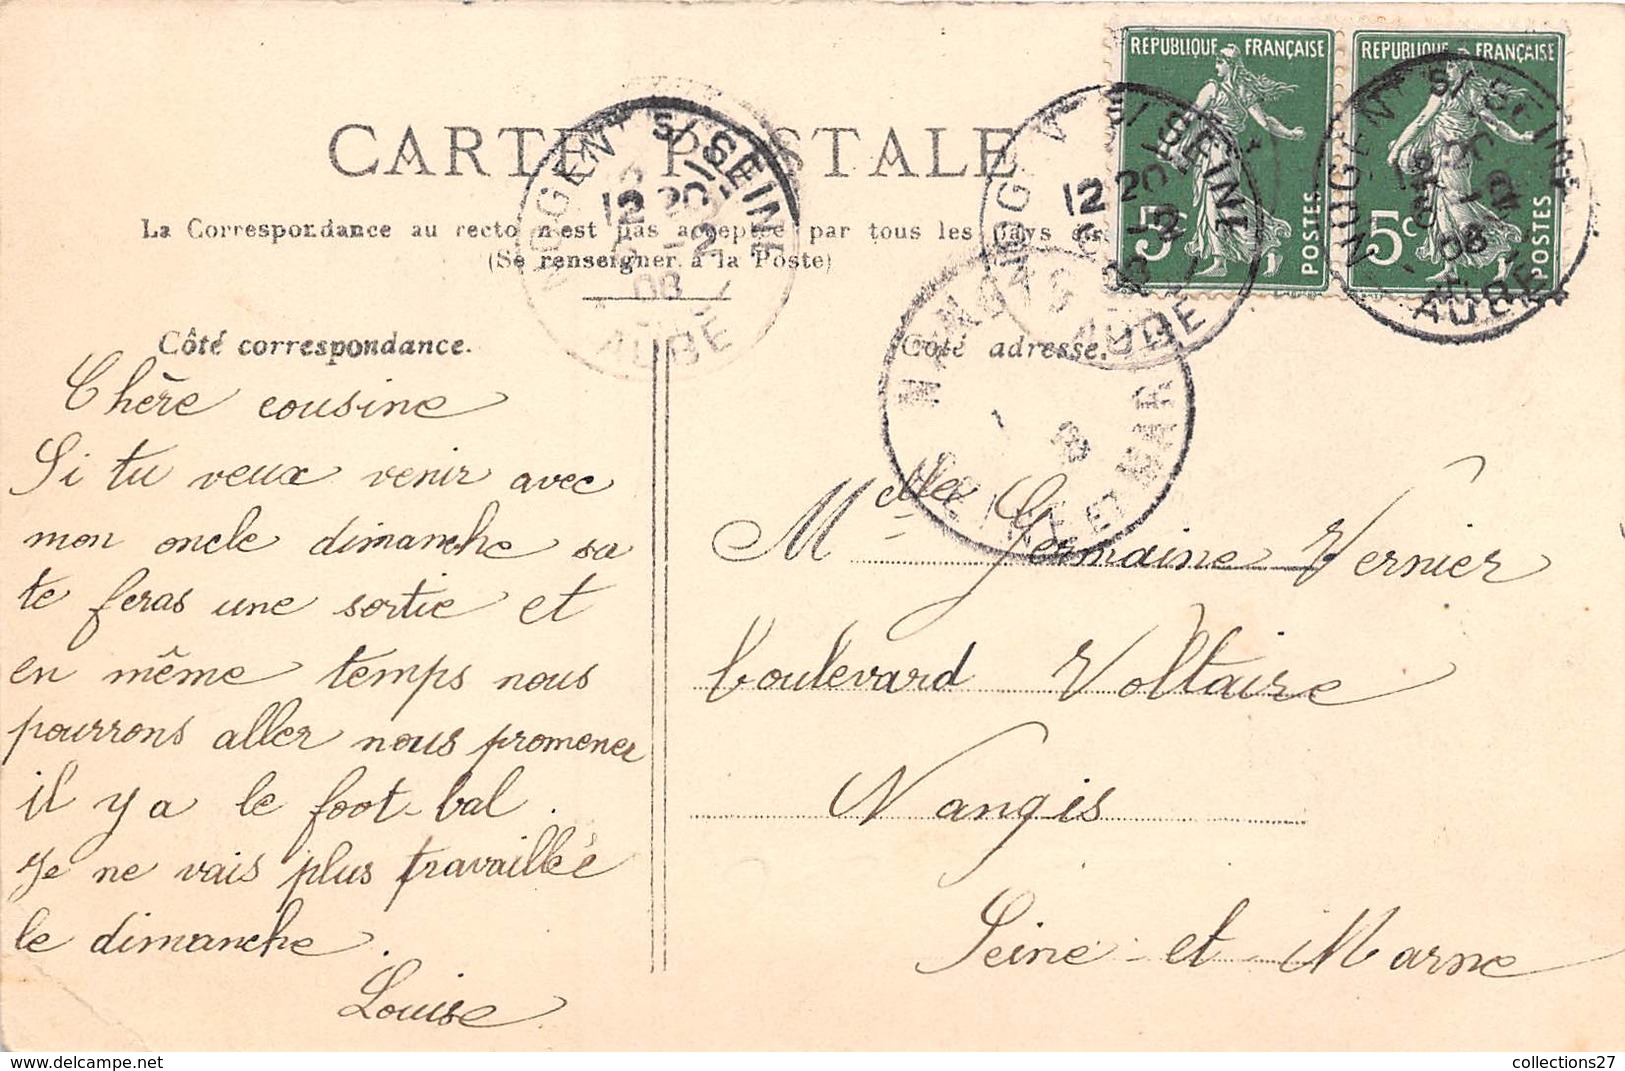 CARTE POSTALE
La Correspondance au recto n'est pas acceptée par tous les pays
(Se renseigner à la Poste)
REPUBLIQUE FRANÇAISE
5c
POSTES
REPUBLIQUE FRANÇAISE
5c
POSTES
NOGENT S/ SEINE
12 20
08
AUBE
S/ SEINE
12 20
AUBE
NOGENT S/ SEINE
08
AUBE
NANGIS
SEINE ET MAR
Côté correspondance.
Chère cousine
Si tu veux venir avec
mon oncle dimanche sa
te feras une sortie et
en même temps nous
pourrons aller nous promener
il y a le foot-bal.
Je ne vais plus travaillée
le dimanche.
Louise
Côté adresse.
Melle Germaine Vernier
boulevard Voltaire
Nangis
Seine et Marne
collections27